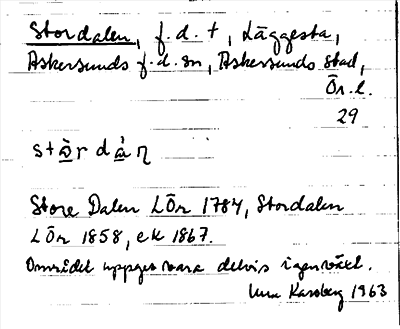 Stordalen, f.d. t, Läggesta,
Askersunds f.d. sn, Askersunds stad,
Ör. l.
29
Store Dalen LÖr 1784, Stordalen
LÖr 1858, ek 1867.
Området uppges vara delvis igenväxt.
Karsberg 1963